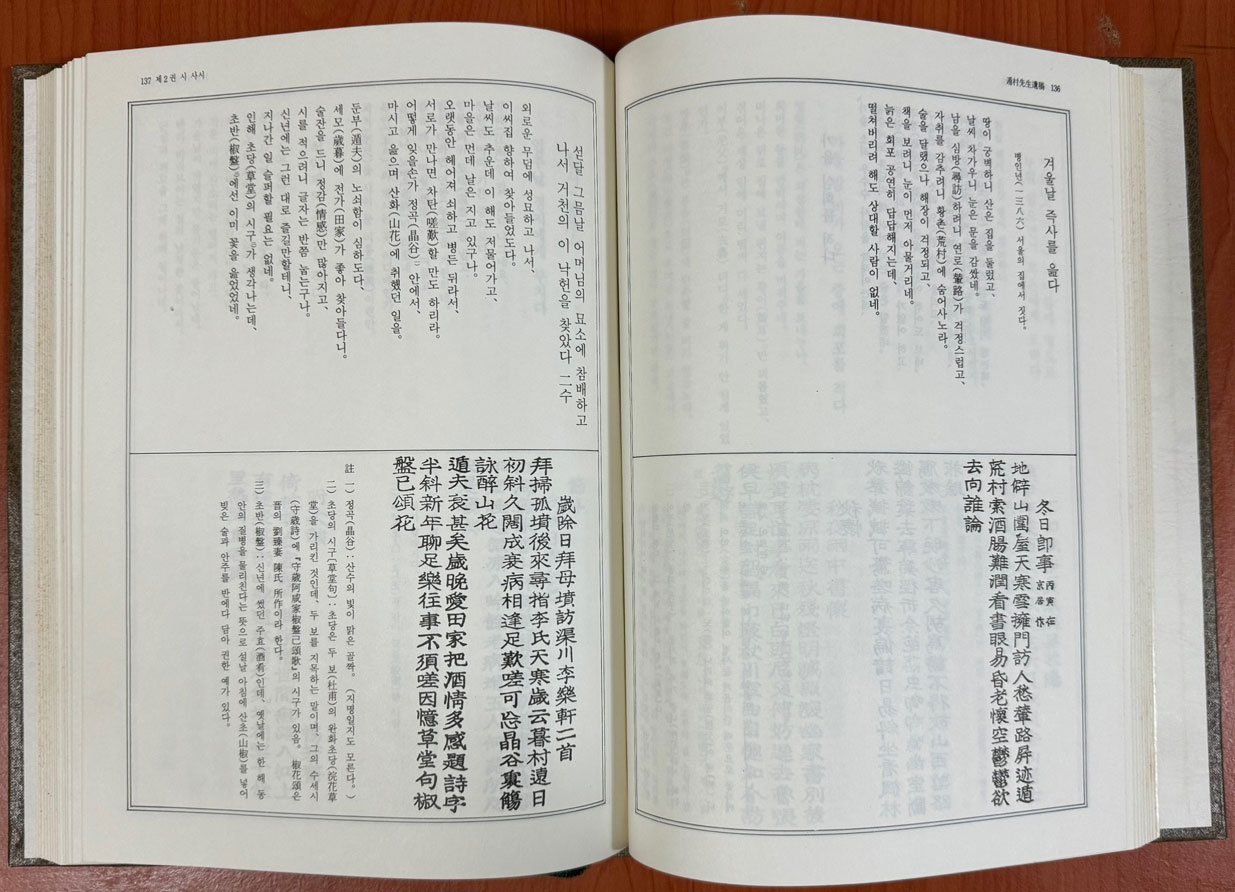 遁村先生遺稿 136
겨울날 즉사를 읊다
병인년(一三八六) 서울의 집에서 짓다.
땅이 궁벽하니 산은 집을 둘렀고、
날씨 차가우니 눈은 문을 감쌌네。
남을 심방(尋訪)하려니 연로(輦路)가 걱정스럽고、
자취를 감추려니 황촌(荒村)에 숨어사노라。
술을 달랬으나 해장이 걱정되고、
책을 보려니 눈이 먼저 아물거리네。
늙은 회포 공연히 답답해지는데、
떨쳐버리려 해도 상대할 사람이 없네。
冬日卽事 丙寅在
京居作
地僻山圍屋天寒雪擁門訪人愁輦路屛迹遁
荒村索酒腸難潤看書眼易昏老懷空鬱鬱欲
去向誰論
137 제2권 시 사시
섣달 그믐날 어머님의 묘소에 참배하고
나서 거천의 이 낙헌을 찾았다 二수
외로운 무덤에 성묘하고 나서、
이씨집 향하여 찾아들었도다。
날씨도 추운데 이 해도 저물어가고、
마을은 먼데 날은 지고 있구나。
오랫동안 헤어져 쇠하고 병든 뒤라서、
서로가 만나면 차탄(嗟歎)할 만도 하리라。
어떻게 잊을손가 정곡(晶谷) 안에서、
마시고 읊으며 산화(山花)에 취했던 일을。
둔부(遁夫)의 노쇠함이 심하도다、
세모(歲暮)에 전가(田家)가 좋아 찾아들다니。
술잔을 드니 정감(情感)만 많아지고、
시를 적으려니 글자는 반쯤 눕는구나。
신년에는 그런 대로 즐길만할테니、
지나간 일 슬퍼할 필요는 없네。
인해 초당(草堂)의 시구가 생각나는데、
초반(椒盤)에선 이미 꽃을 읊었었네。
歲除日拜母墳訪渠川李樂軒二首
拜掃孤墳後來尋指李氏天寒歲云暮村遠日
初斜久闊成衰病相逢足歎嗟可忘晶谷裏觴
詠醉山花
遁夫衰甚矣歲晚愛田家把酒情多感題詩字
半斜新年聊足樂往事不須嗟因憶草堂句椒
盤已頌花
註 一) 정곡(晶谷)‥산수의 빛이 맑은 골짝。 (지명일지도 모른다。)
二) 초당의 시구(草堂句)‥초당은 두 보(杜甫)의 완화초당(浣花草
堂)을 가리킨 것인데、두 보를 지목하는 말이며、그의 수세시
(守歲詩)에 『守歲阿戚家椒盤已頌歌』의 시구가 있음。 椒花頌은
晋의 劉臻妻 陳氏 所作이라 한다。
三) 초반(椒盤)‥신년에 썼던 주효(酒肴)인데、옛날에는 한 해 동
안의 질병을 물리친다는 뜻으로 설날 아침에 산초(山椒)를 넣어
빚은 술과 안주를 반에다 담아 권한 예가 있다。